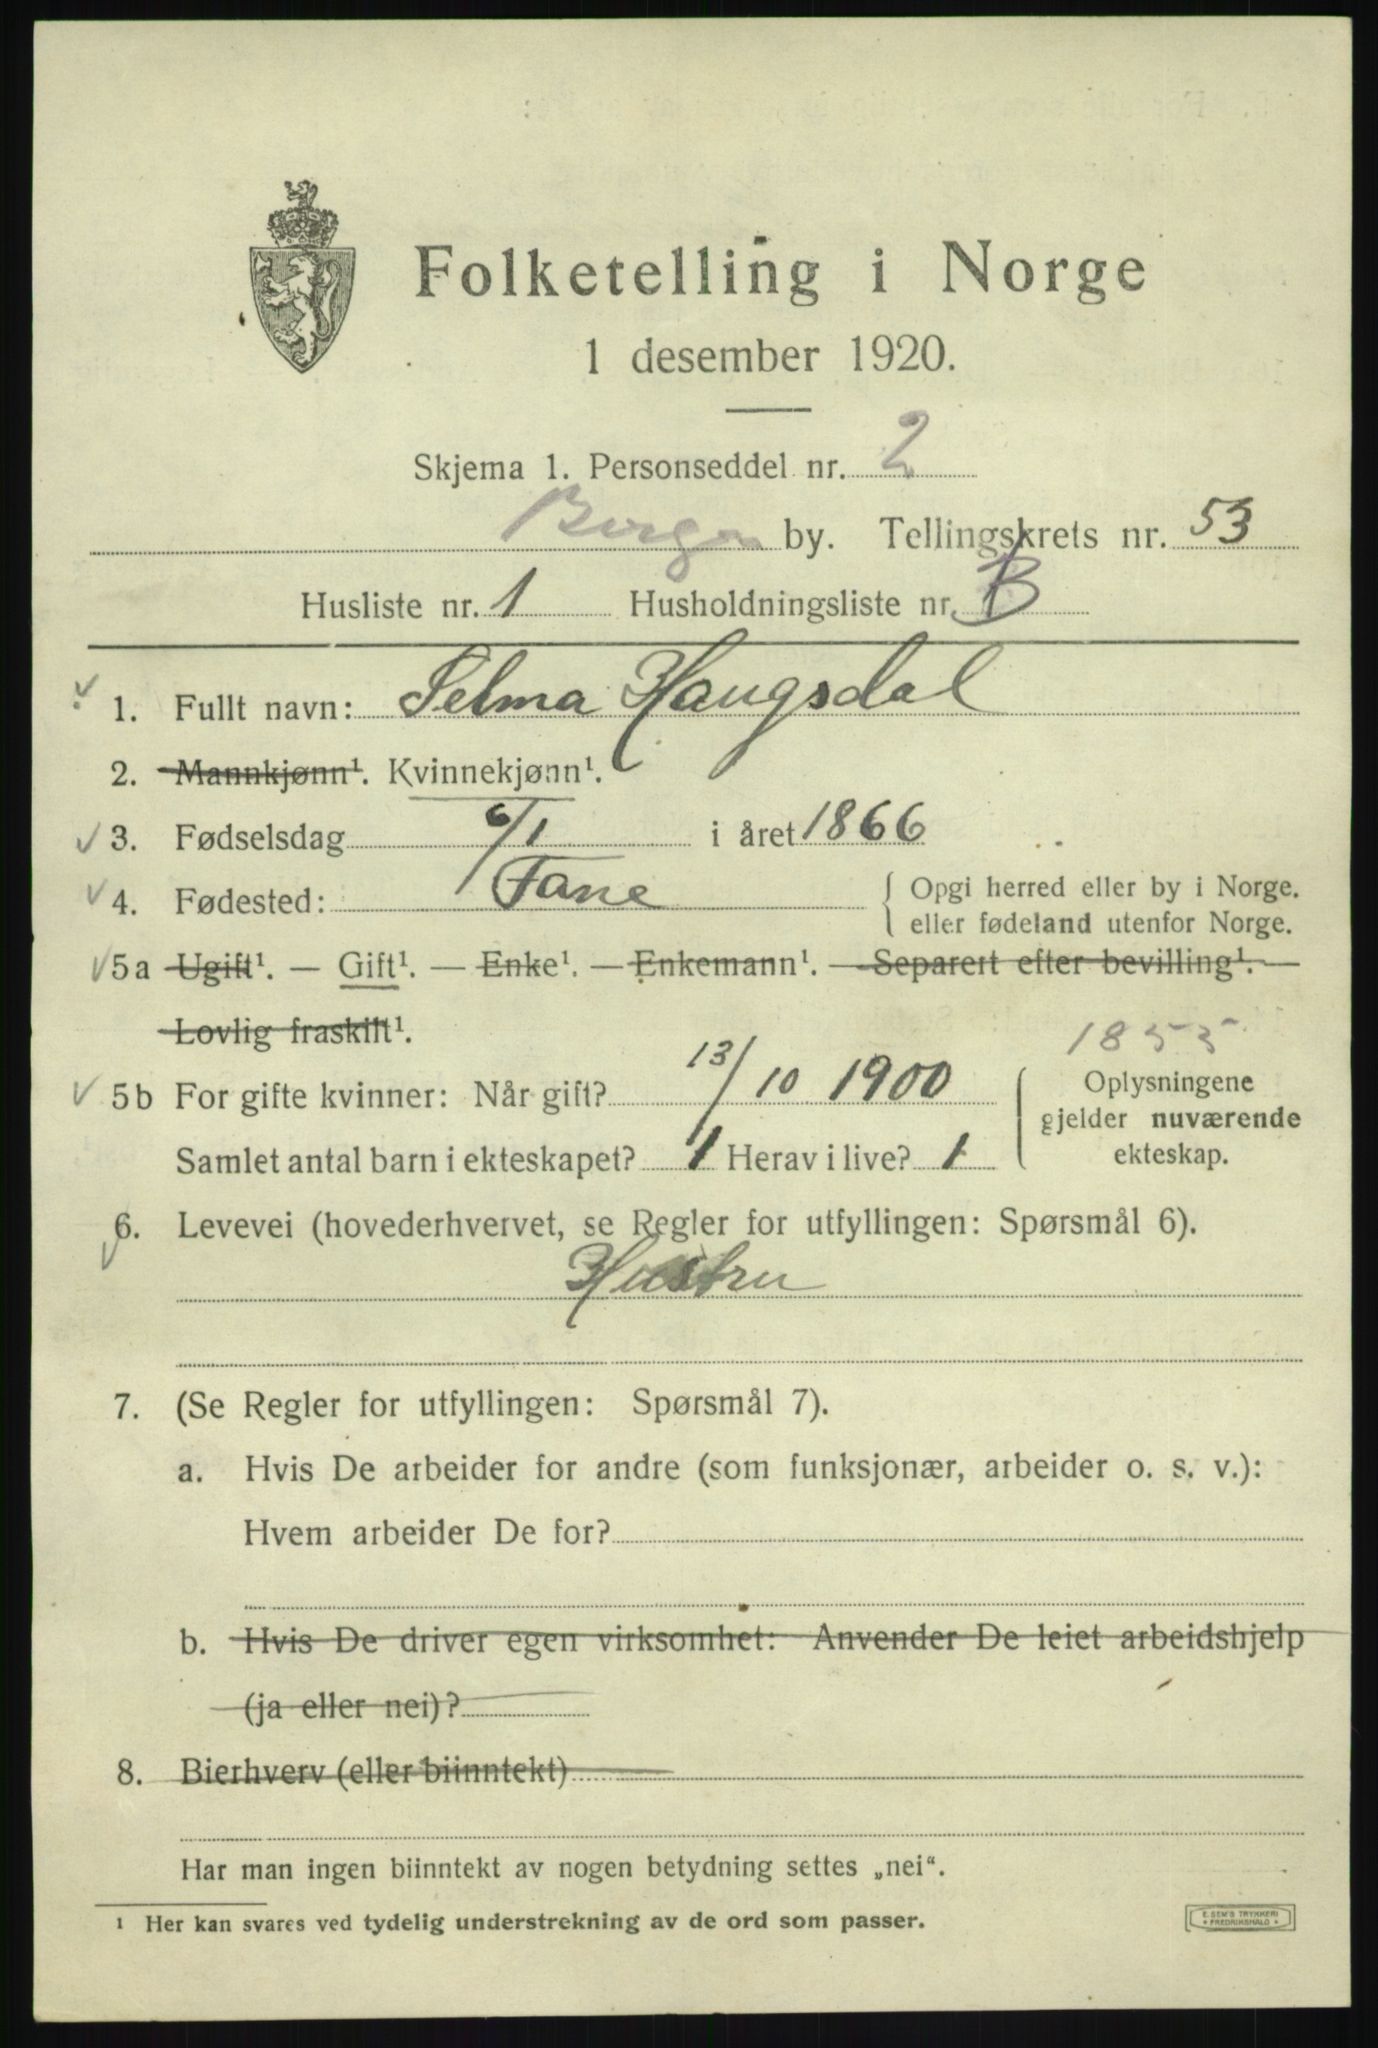 Folketelling i Norge
1 desember 1920.
Skjema 1. Personseddel nr. 2
Bergen by. Tellingskrets nr. 53
Husliste nr. 1 Husholdningsliste nr. B
1. Fullt navn: Selma Haugsdal
2. Mannkjønn¹. Kvinnekjønn¹.
3. Fødselsdag 6/1 i året 1866
4. Fødested: Fane { Opgi herred eller by i Norge.
eller fødeland utenfor Norge.
5a Ugift¹. — Gift¹. — Enke¹. — Enkemann¹. — Separert efter bevilling¹. —
Lovlig fraskilt¹.
1855
5b For gifte kvinner: Når gift? 13/10 1900
Samlet antal barn i ekteskapet? 1 Herav i live? 1
Oplysningene
gjelder nuværende
ekteskap.
6. Levevei (hovederhvervet, se Regler for utfyllingen: Spørsmål 6).
Hustru
7. (Se Regler for utfyllingen: Spørsmål 7).
a. Hvis De arbeider for andre (som funksjonær, arbeider o. s. v.):
Hvem arbeider De for?
b. Hvis De driver egen virksomhet: Anvender De leiet arbeidshjelp
(ja eller nei)?
8. Bierhverv (eller biinntekt)
Har man ingen biinntekt av nogen betydning settes „nei“.
¹ Her kan svares ved tydelig understrekning av de ord som passer.
E. SEM'S TRYKKERI
• FREDRIKSHALD •